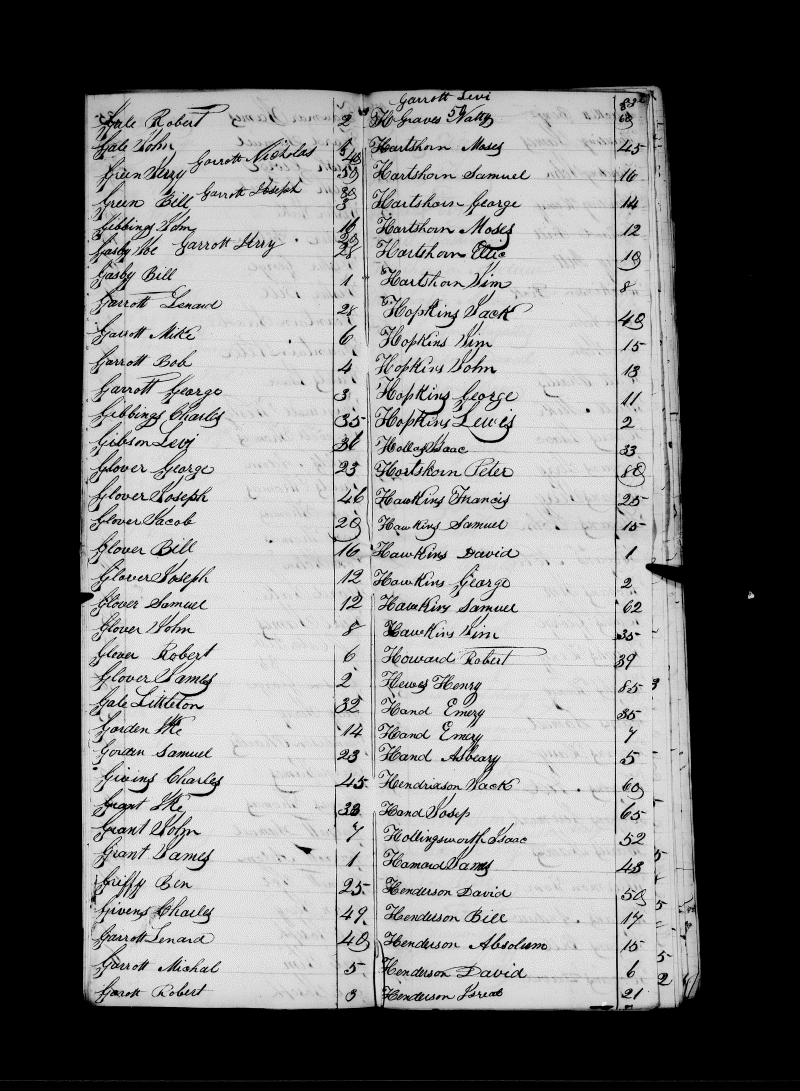 Garrott Levi
Gale Robert 2
Gale John
Green Jerry 50
Garrott Nicholas 40
Green Bill 3
Garrott Joseph 30
Gibbings John 16
Gasby Joe 28
Garrott Jerry
Gasby Bill 1
Garrott Lenard 28
Garrott Mike 6
Garrott Bob 4
Garrott George 3
Gibbings Charles 35
Gibson Levi
Glover George 23
Glover Joseph 46
Glover Jacob 20
Glover Bill 16
Glover Joseph 12
Glover Samuel 12
Glover John 8
Glover Robert 6
Glover James 2
Gale Littleton 32
Gorden Ike 14
Gorden Samuel 23
Givins Charles 45
Grant Ike 33
Grant John 7
Grant James 1
Griffy Ben 25
Givens Charles 49
Garrott Lenard 40
Garrott Michal 5
Garott Robert 3
Graves Natty
Hartshorn Moses 45
Hartshorn Samuel 16
Hartshorn George 14
Hartshorn Moses 12
Hartshorn 10
Hartshorn Jim 8
Hopkins Jack 40
Hopkins Jim 15
Hopkins John 13
Hopkins George 11
Hopkins Lewis 2
Isaac 33
Hortshorn Peter 80
Hawkins Francis 25
Hawkins Samuel 15
Hawkins David 1
Hawkins George 2
Hawkins Samuel 62
Hawkins Jim 35
Howard Robert 39
Hewes Henry 85
Hand Emery 35
Hand Emory 7
Hand Asbeary 5
Hendrixson Jack 60
Hand Josep 65
Hollingsworth Isaac 52
Hamard James 43
Henderson David 50
Henderson Bill 17
Henderson Absolum 15
Henderson David 6
Henderson Isreal 21